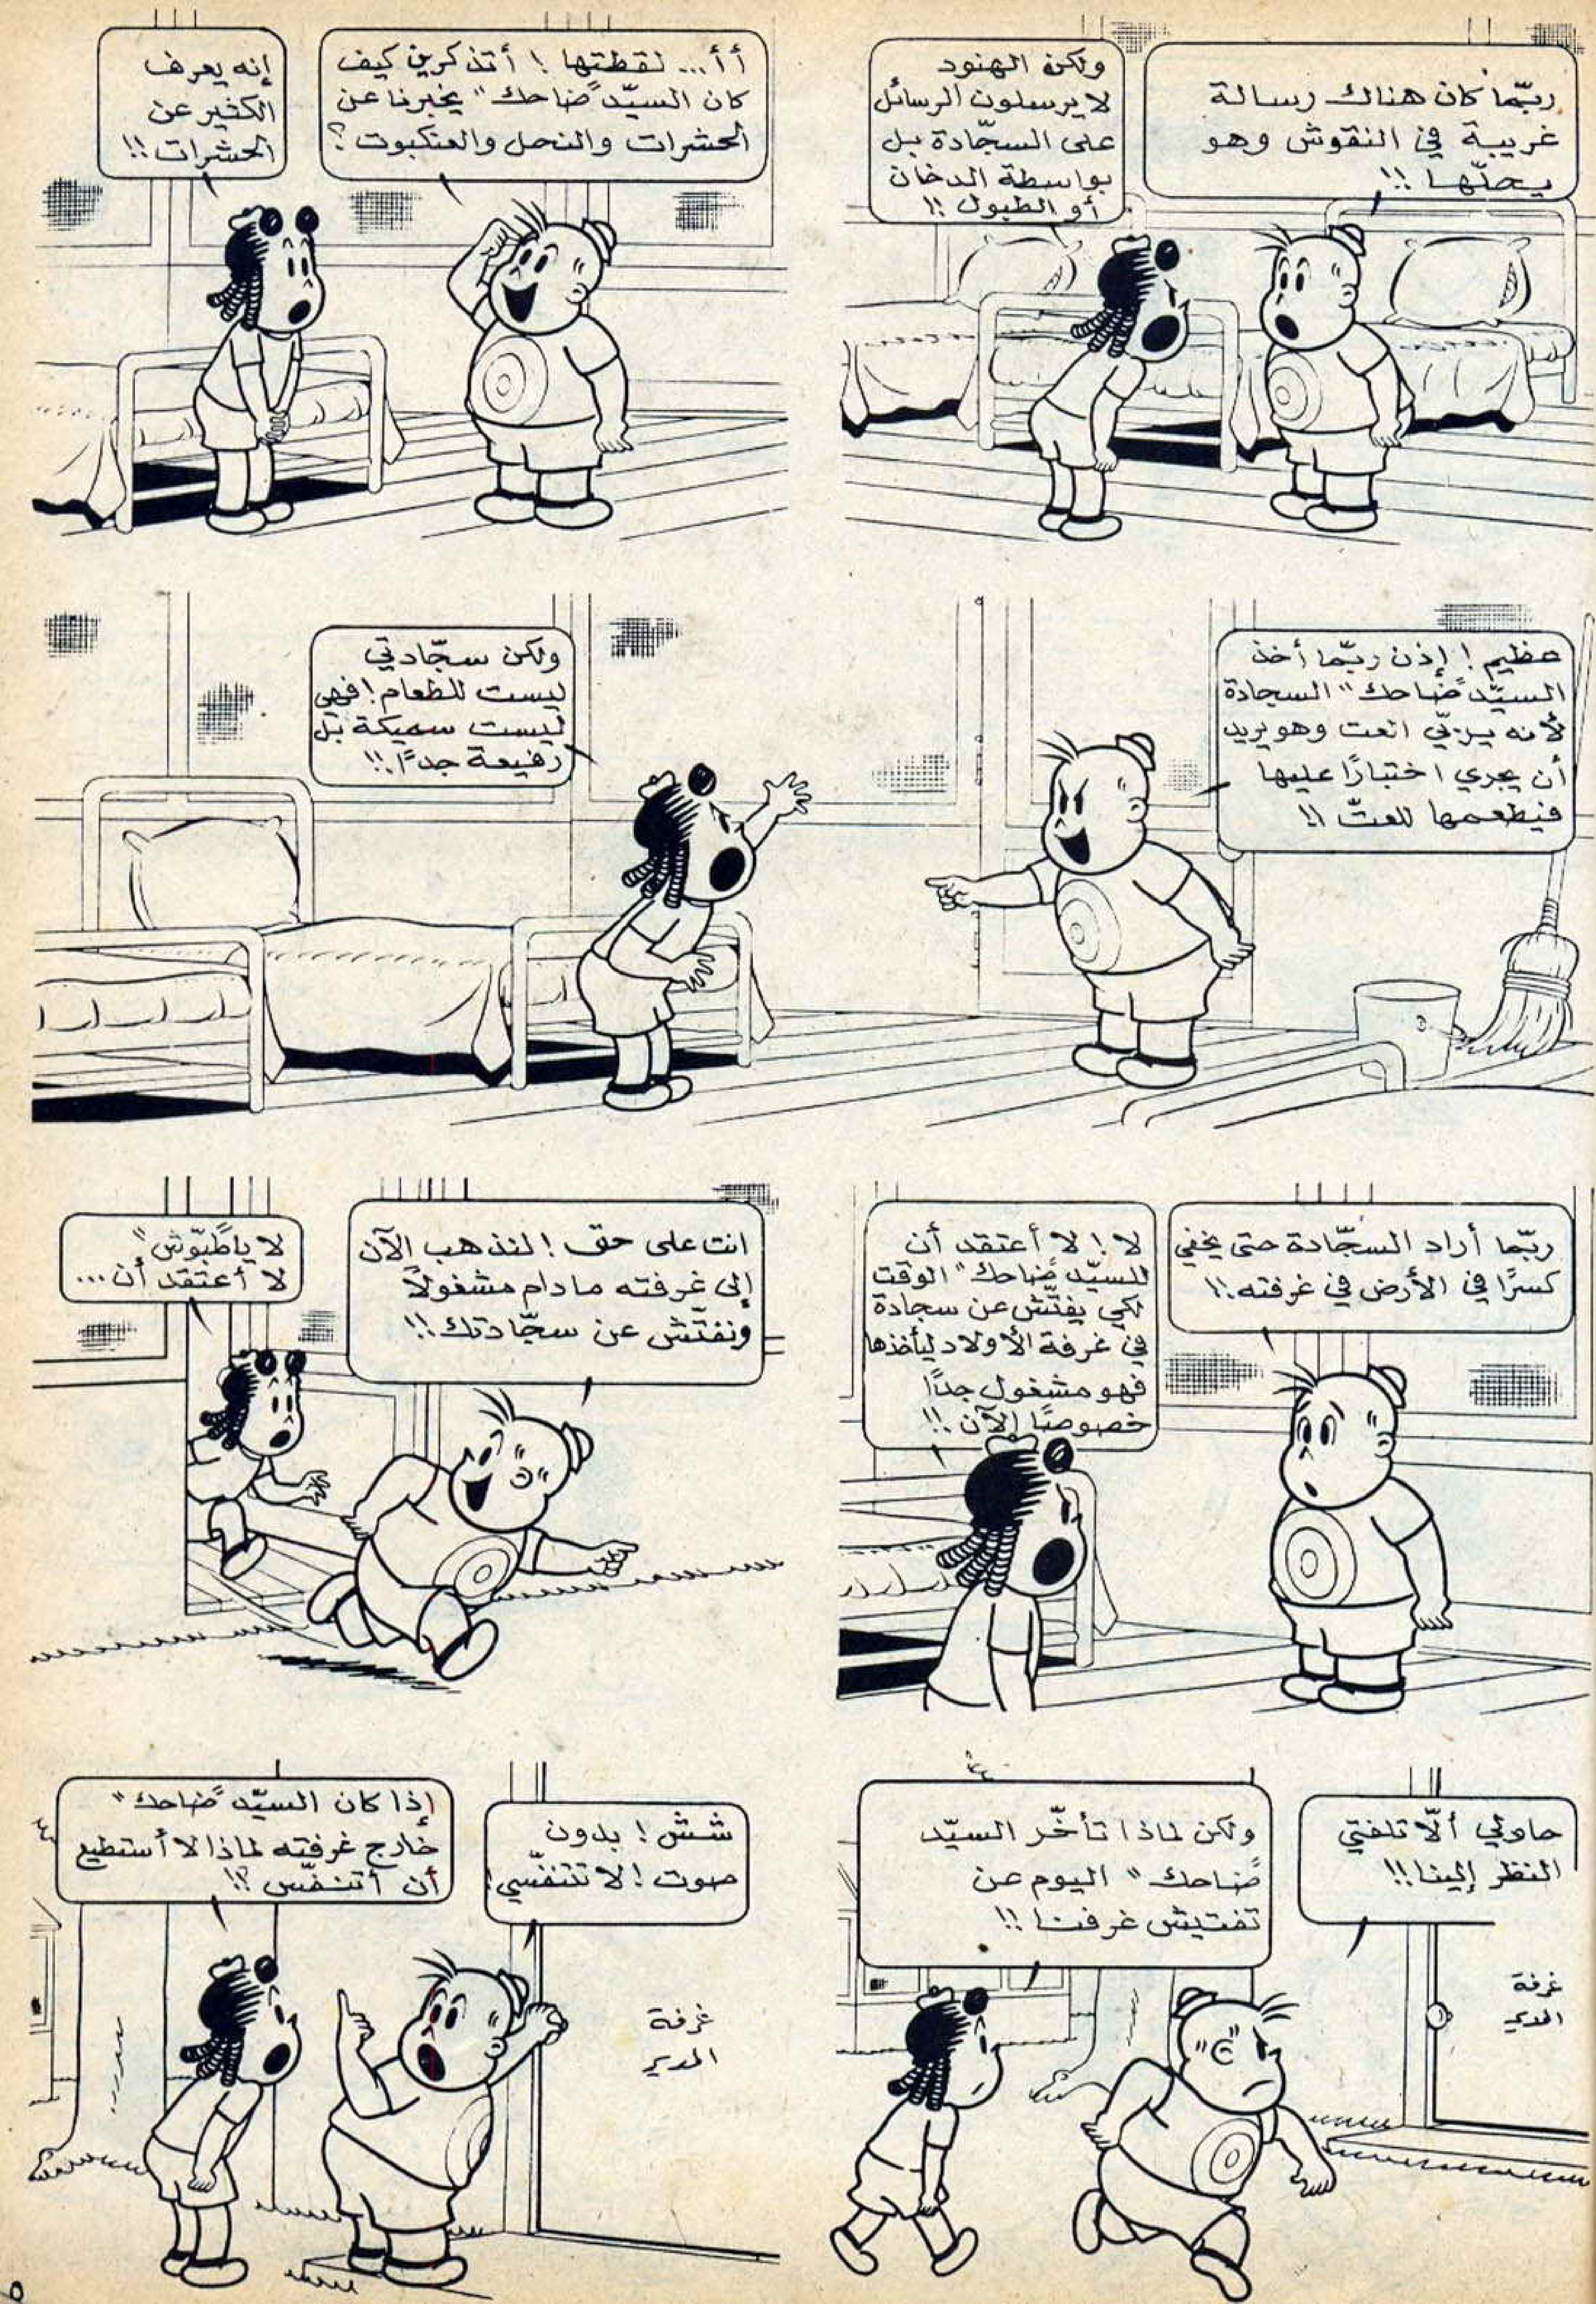 ربّما كان هناك رسالة
غريبة في النقوش وهو
يحلّها !!
ولكن الهنود
لا يرسلون الرسائل
على السجّادة بل
بواسطة الدخان
أو الطبول !!
أ أ ... لقطتها ! أتذكرين كيف
كان السيّد "ضاحك" يخبرنا عن
الحشرات والنحل والعنكبوت ؟
إنه يعرف
الكثير عن
الحشرات !!
عظيم ! إذن ربّما أخذ
السيّد "ضاحك" السجادة
لأنه يربّي العت وهو يريد
أن يجري اختبارًا عليها
فيطعمها للعتّ !!
ولكن سجّادتي
ليست للطعام ! فهي
ليست سميكة بل
رفيعة جدًا !!
ربّما أراد السجّادة حتى يخفي
كسرًا في الأرض في غرفته !!
لا ! لا أعتقد أن
للسيّد "ضاحك" الوقت
لكي يفتّش عن سجادة
في غرفة الأولاد ليأخذها
فهو مشغول جدًا
خصوصًا الآن !!
انت على حق ! لنذهب الآن
إلى غرفته مادام مشغولاً
ونفتّش عن سجّادتك !!
لا يا "طبّوش"
لا أعتقد أن ...
حاولي ألاّ تلفتي
النظر إلينا !!
ولكن لماذا تأخّر السيّد
"ضاحك" اليوم عن
تفتيش غرفنا !!
غرفة
المدير
شش ! بدون
صوت ! لا تتنفّسي !
إذا كان السيّد "ضاحك"
خارج غرفته لماذا لا أستطيع
أن أتنفّس ؟!!
غرفة
المدير